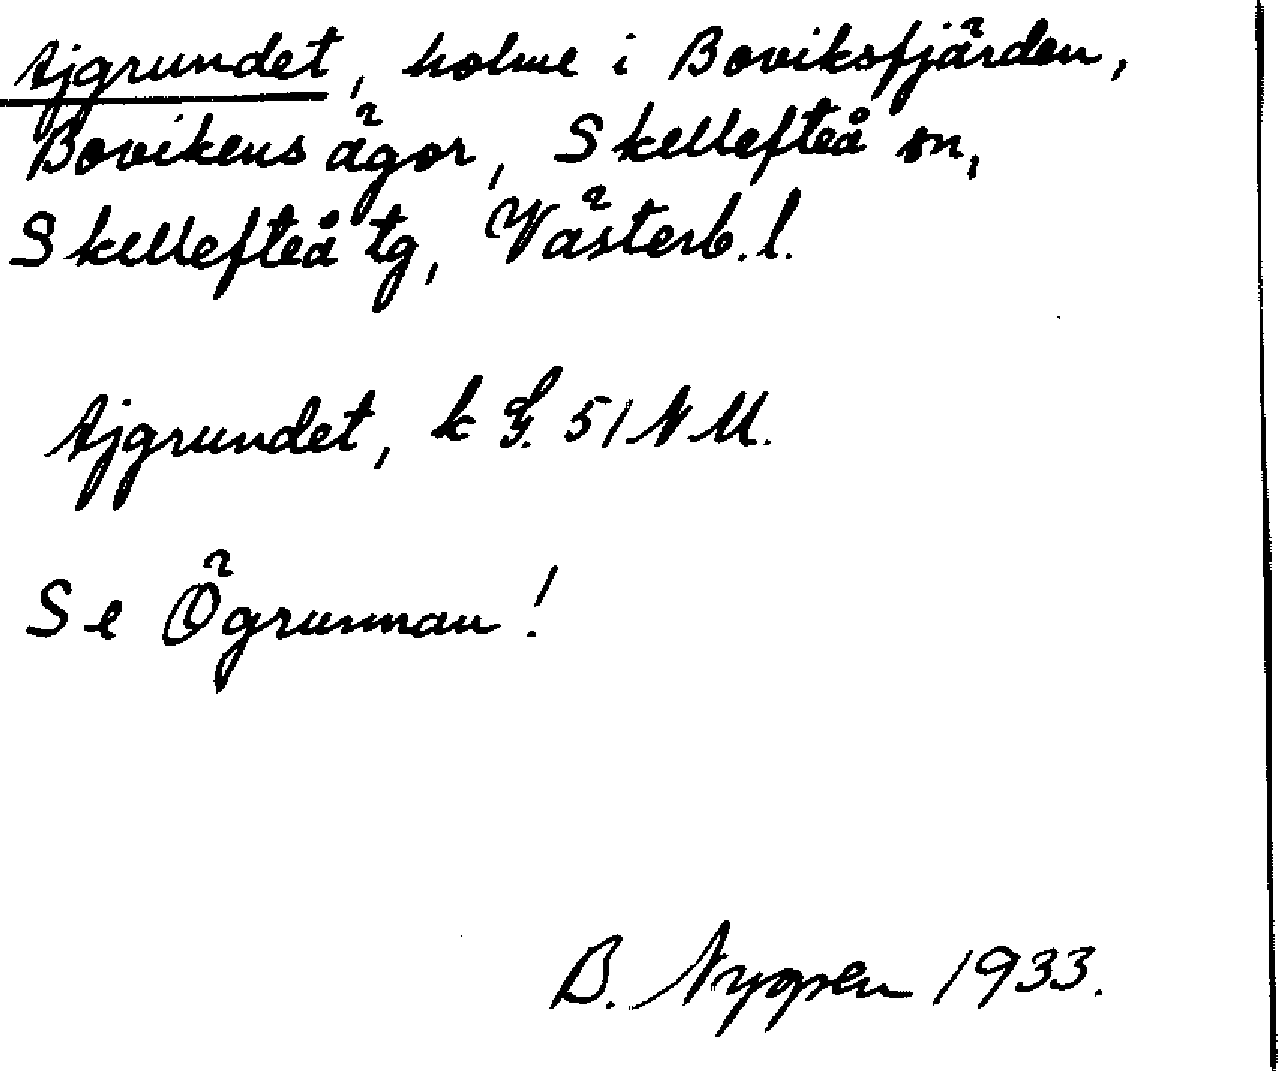 Ajgrundet, holme i Boviksfjärden,
Bovikens ägor, Skellefteå sn,
Skellefteå tg, Västerb. l.
Ajgrundet, k G. 51 N M.
Se Ögrunnan!
B. Nygren 1933.